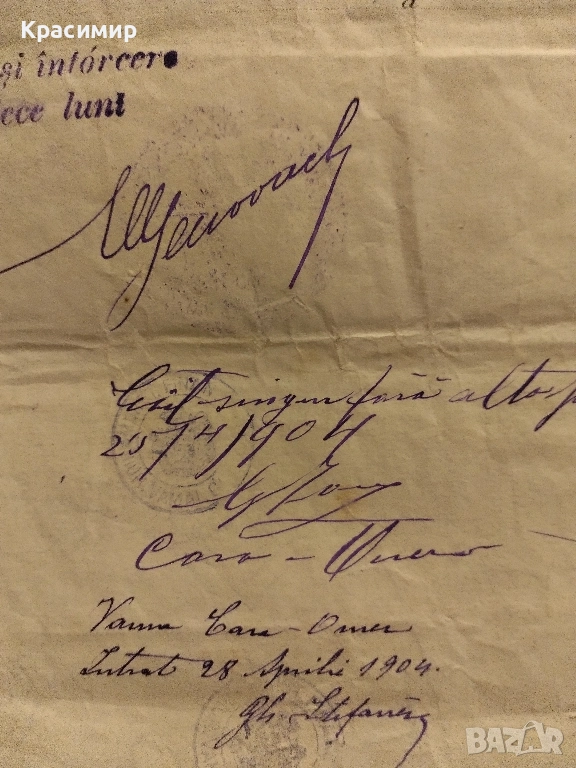 Красимир
și întórcere
ece luni
Eșit singur fără alto
25/4/904
Cara-Omer
Vama Cara-Omer
Intrat 28 Aprilie 1904.
Gh. Ștefănesc
BAZAR